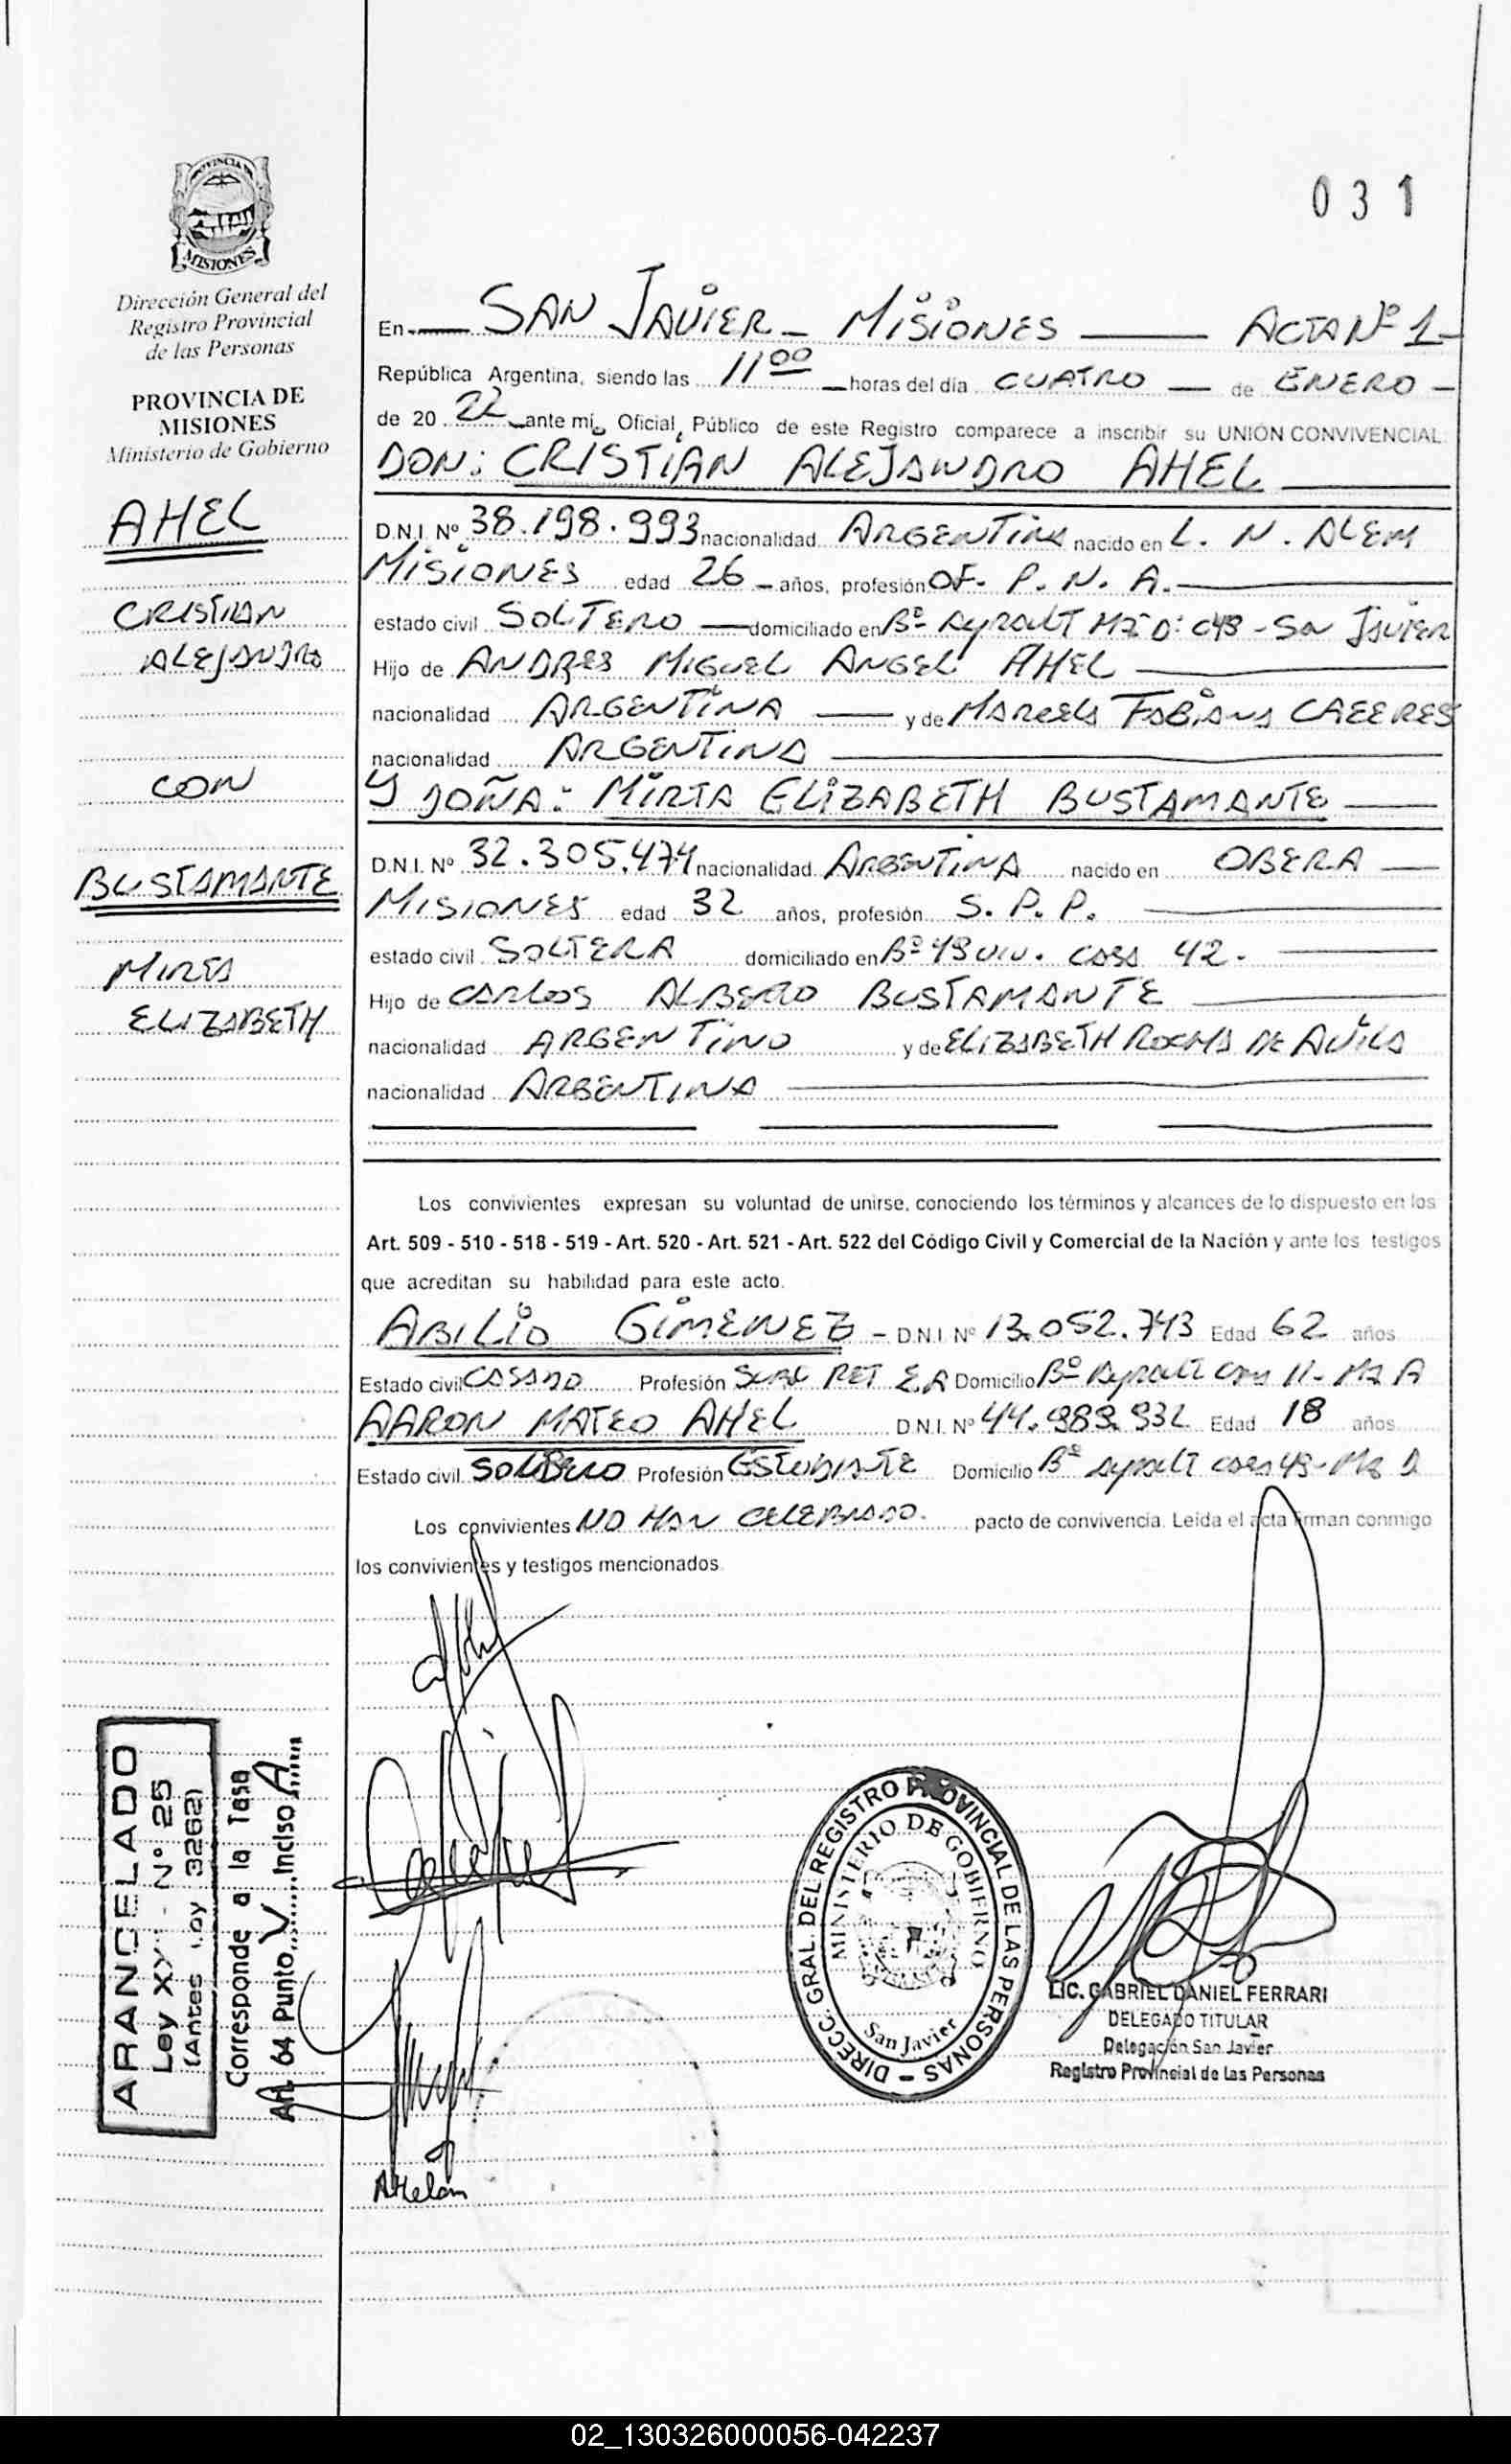 031
PROVINCIA DE
MISIONES
Dirección General del
Registro Provincial
de las Personas
PROVINCIA DE
MISIONES
Ministerio de Gobierno
AHEL
CRISTIAN
ALEJANDRO
CON
BUSTAMANTE
MIRTA
ELIZABETH
En SAN JAVIER - MISIONES ACTA Nº 1-
República Argentina, siendo las 11 00 horas del día CUATRO de ENERO -
de 20 22 ante mí, Oficial, Público de este Registro comparece a inscribir su UNIÓN CONVIVENCIAL:
DON: CRISTIAN ALEJANDRO AHEL
D.N.I. Nº 38.198.993 nacionalidad ARGENTINA nacido en L. N. ALEM
MISIONES edad 26 - años, profesión OF. P. N. A.
estado civil SOLTERO domiciliado en Bº AYRAULT MZ D: C43 - San JAVIER
Hijo de ANDRES MIGUEL ANGEL AHEL
nacionalidad ARGENTINA y de MARCELA FABIANA CACERES
nacionalidad ARGENTINA
Y DOÑA: MIRTA ELIZABETH BUSTAMANTE
D.N.I. Nº 32.305.474 nacionalidad ARGENTINA nacido en OBERA
MISIONES edad 32 años, profesión S. P. P.
estado civil SOLTERA domiciliado en Bº 49 VIV. CASA 42.
Hijo de CARLOS ALBERTO BUSTAMANTE
nacionalidad ARGENTINO y de ELIZABETH DE AVILA
nacionalidad ARGENTINA
Los convivientes expresan su voluntad de unirse, conociendo los términos y alcances de lo dispuesto en los
Art. 509 - 510 - 518 - 519 - Art. 520 - Art. 521 - Art. 522 del Código Civil y Comercial de la Nación y ante los testigos
que acreditan su habilidad para este acto.
ABILIO GIMENEZ - D.N.I. Nº 13.052.743 Edad 62 años
Estado civil CASADO Profesión RET E.A Domicilio Bº Ayrault Casa 11- Mz A
AARON MATEO AHEL D.N.I. Nº 44.989.932 Edad 18 años
Estado civil SOLTERO Profesión ESTUDIANTE Domicilio Bº Ayrault casa 43- Mz D
Los convivientes NO HAN CELEBRADO. pacto de convivencia. Leída el acta firman conmigo
los convivientes y testigos mencionados.
ARANCELADO
Ley Nº 25
(Antes Ley 3262)
Corresponde a la Tasa
Art. 64 Punto V Inciso A
DIRECC. GRAL. DEL REGISTRO PROVINCIAL DE LAS PERSONAS -
MINISTERIO DE GOBIERNO
San Javier
LIC. GABRIEL DANIEL FERRARI
DELEGADO TITULAR
Delegación San Javier
Registro Provincial de las Personas
02_130326000056-042237